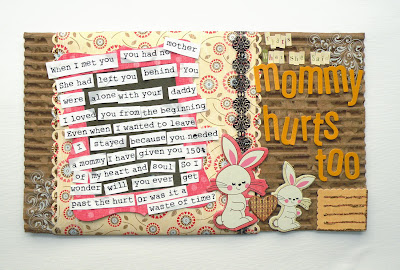 When I met you you had no mother
She had left you behind You
were alone with your daddy
I loved you from the beginning
Even when I wanted to leave
I stayed because you needed
a mommy I have given you 150%
of my heart and soul So I
wonder will you ever get
past the hurt or was it a
waste of time?
mommy
hurts
too